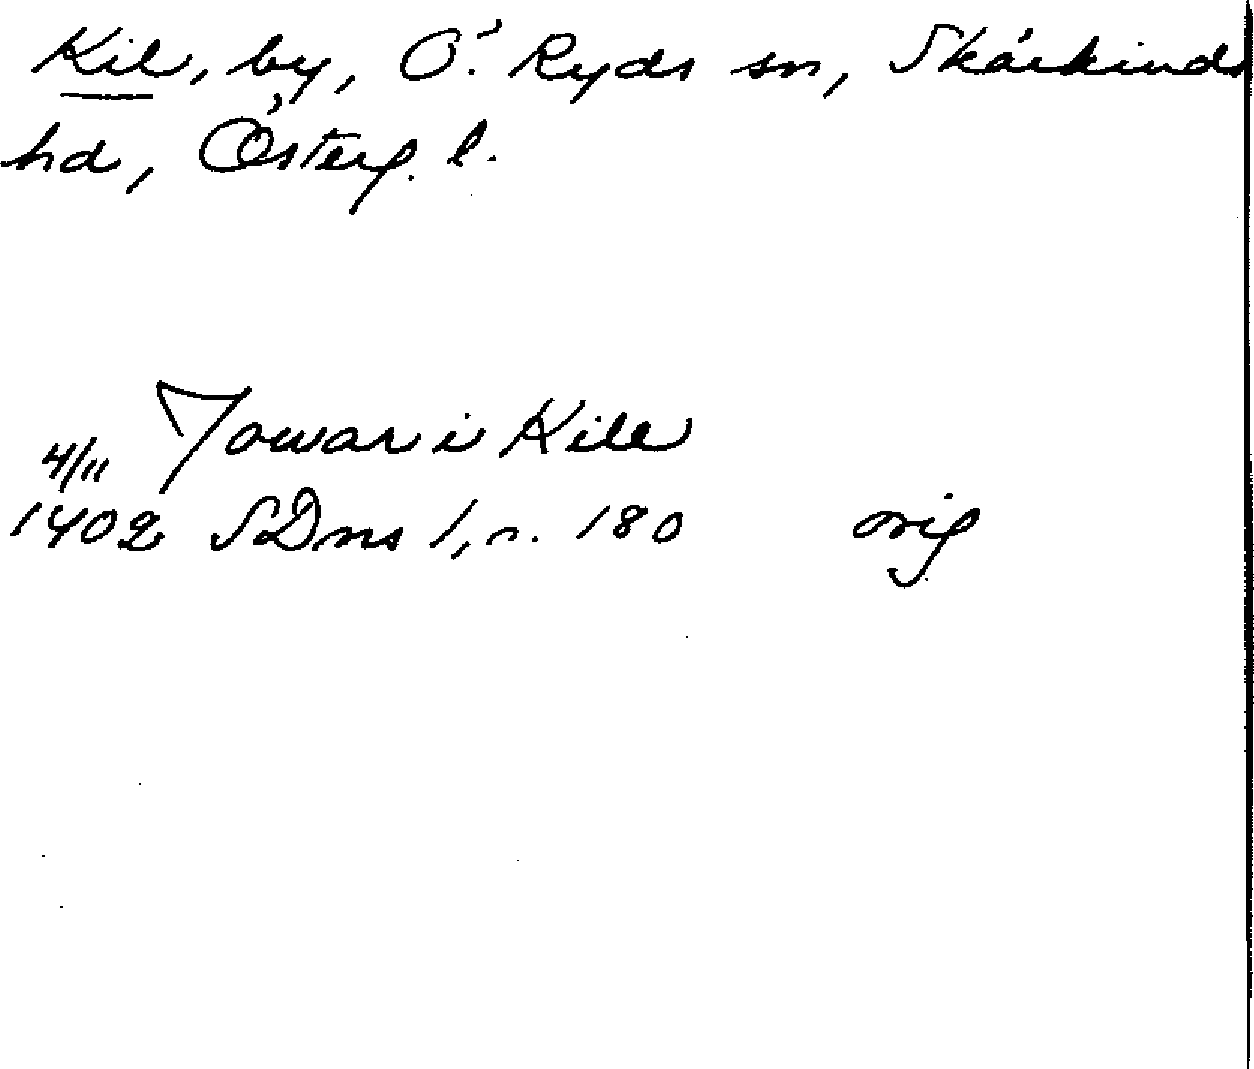 Kil, by, Ö. Ryds sn, Skärkinds
hd, Österg. l.
Jowan i Kile
4/11
1402 SDns 1, n. 180 orig